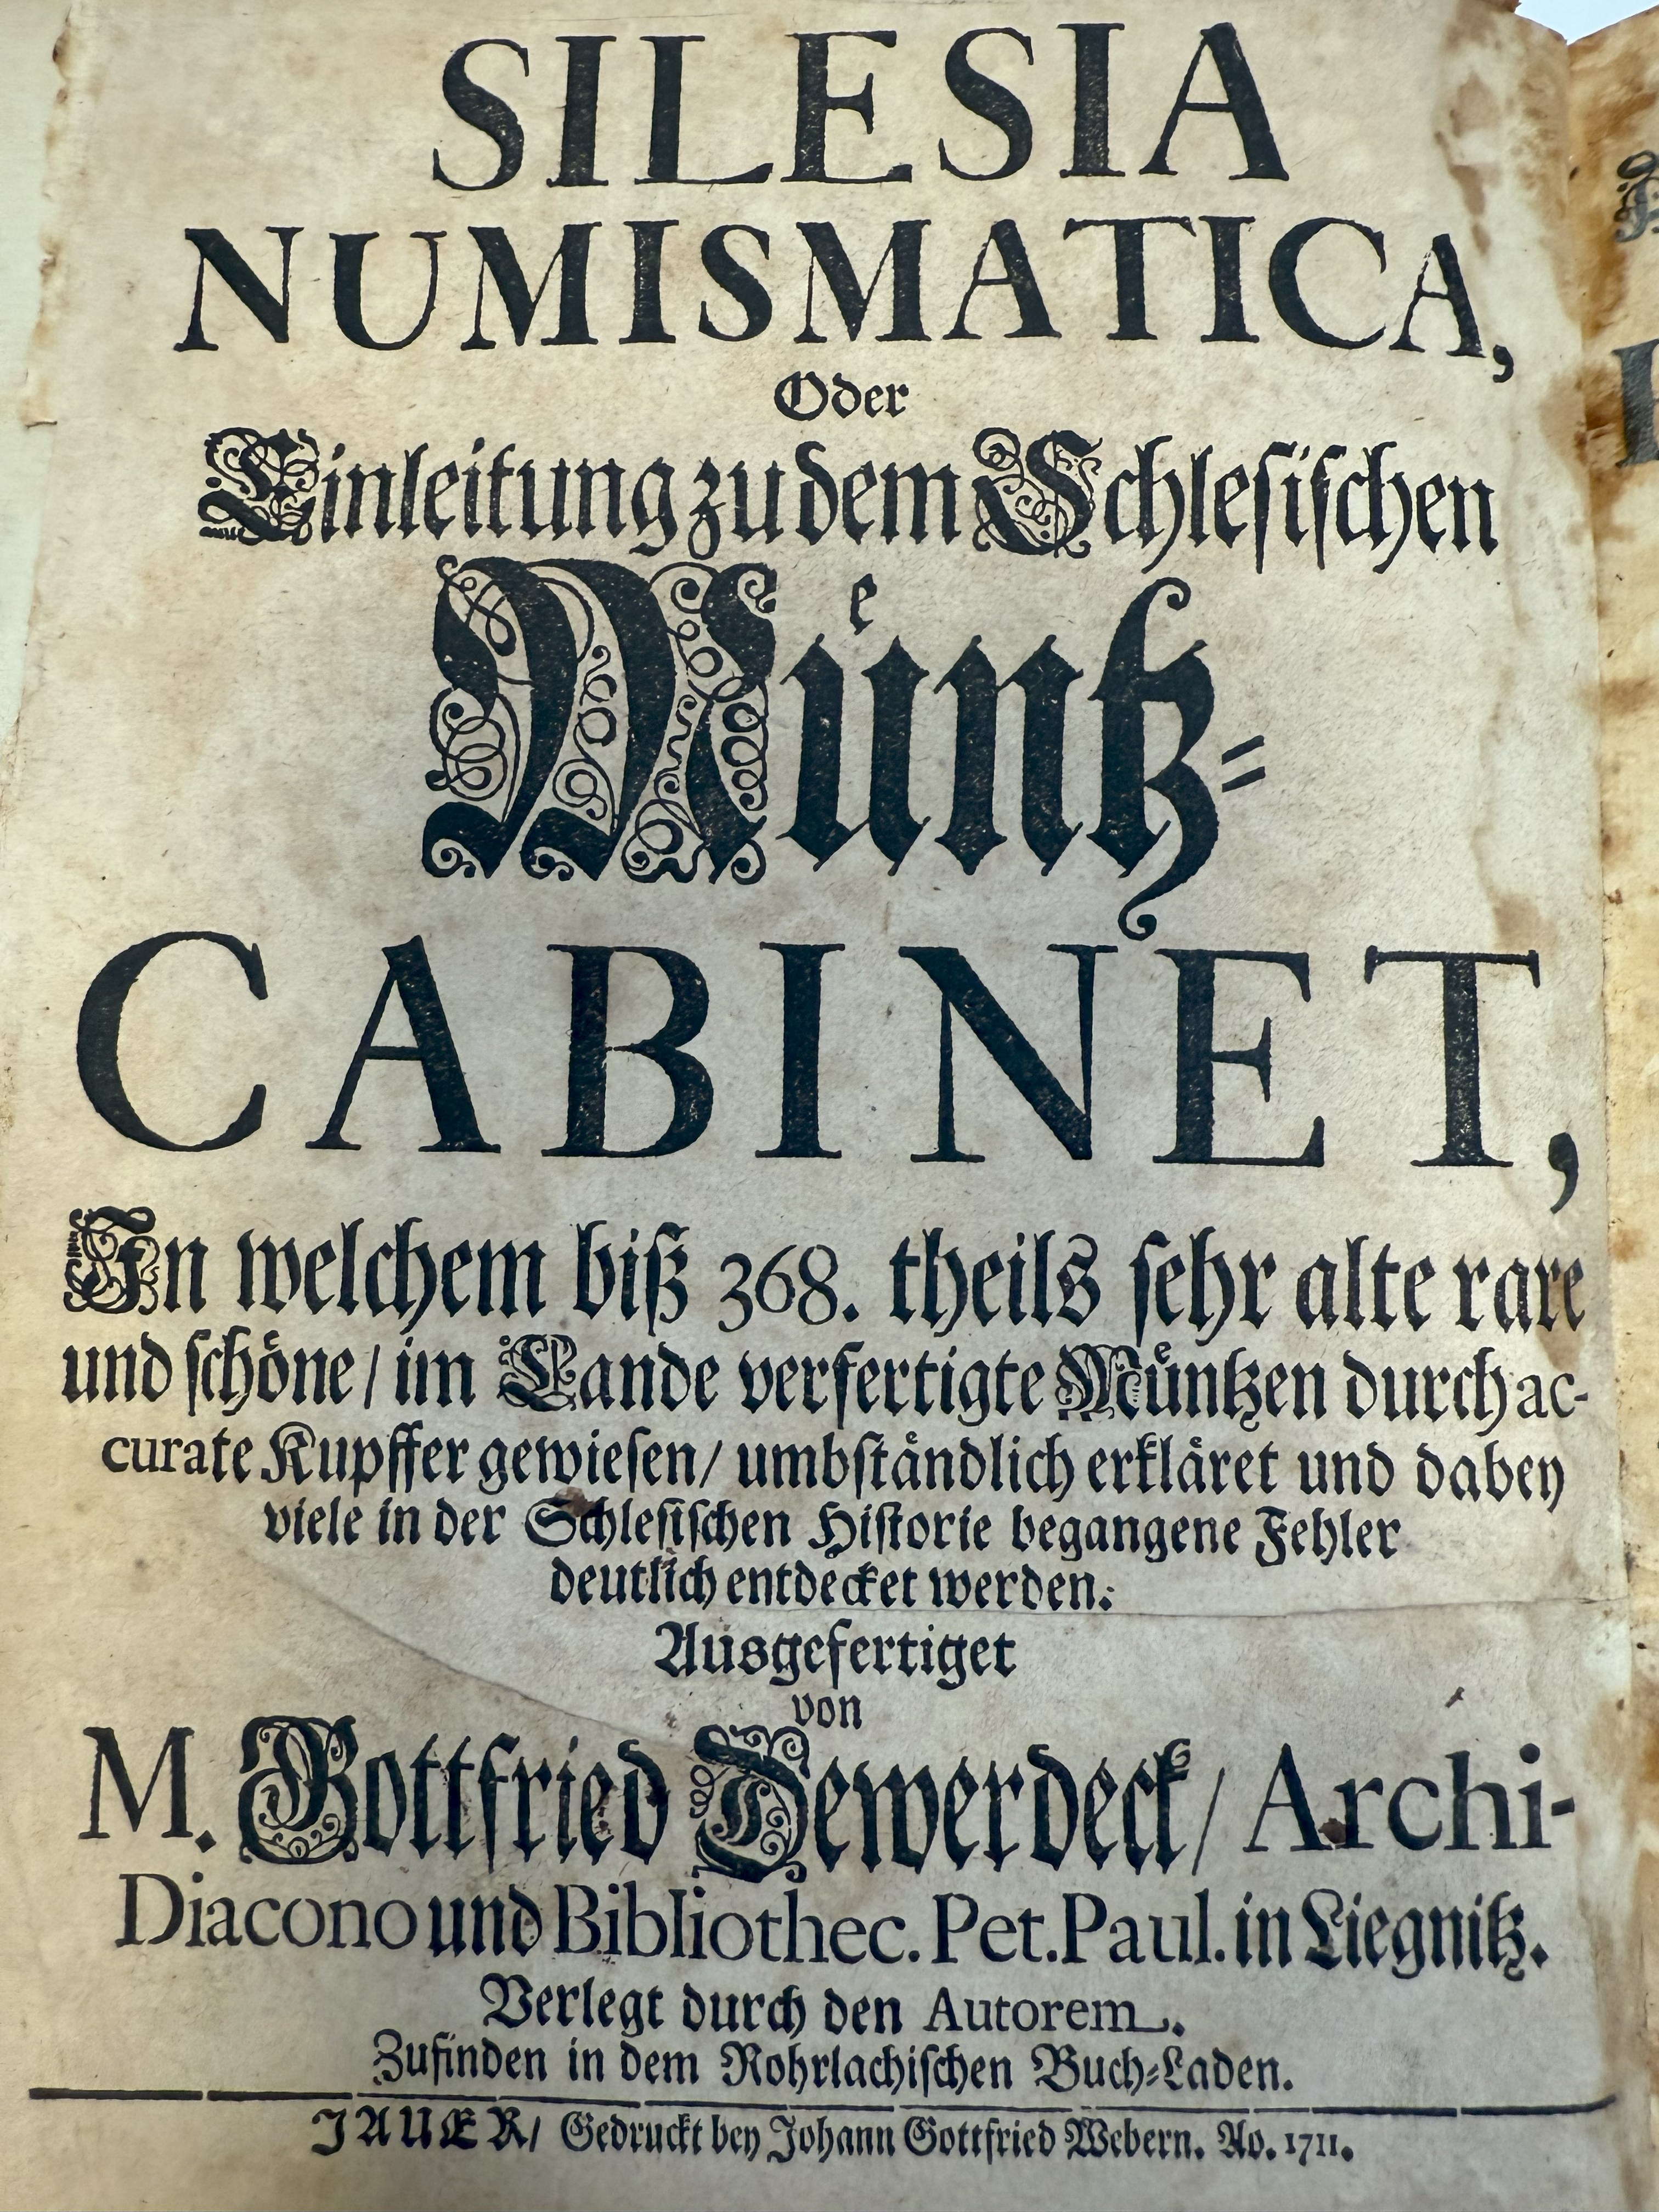 SILESIA
NUMISMATICA,
Oder
Einleitung zu dem Schlesischen
Müntz=
CABINET,
In welchem biß 368. theils sehr alte rare
und schöne / im Lande verfertigte Müntzen durch ac-
curate Kupffer gewiesen / umbständlich erkläret und dabey
viele in der Schlesischen Historie begangene Fehler
deutlich entdecket werden.
Ausgefertiget
von
M. Gottfried Dewerdeck / Archi-
Diacono und Bibliothec. Pet. Paul. in Liegnitz.
Verlegt durch den Autorem.
Zufinden in dem Rohrlachischen Buch=Laden.
JAUER / Gedruckt bey Johann Gottfried Webern. Ao. 1711.